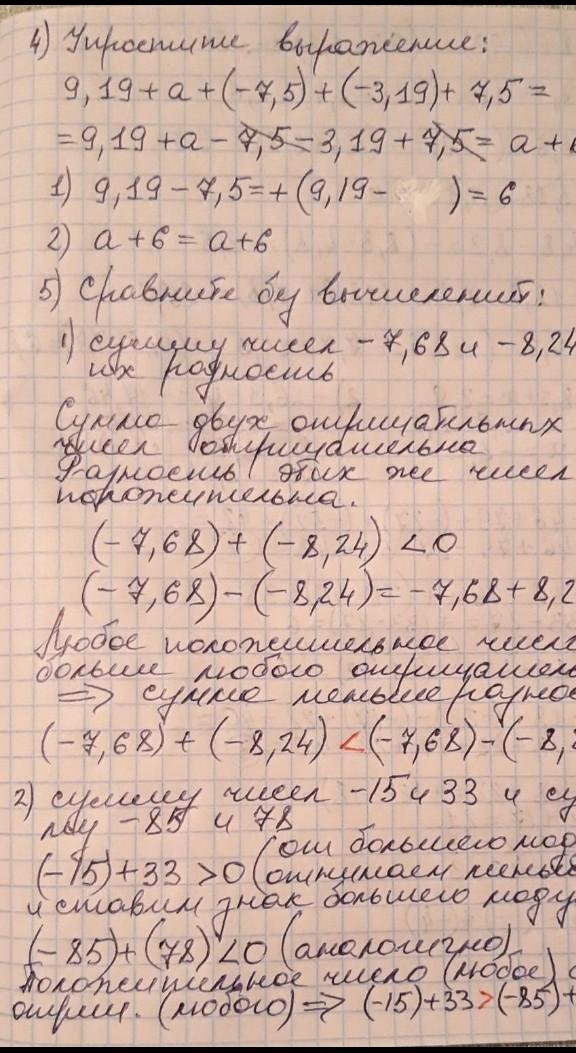 4) Упростите выражение:
9,19 + a + (-7,5) + (-3,19) + 7,5 =
= 9,19 + a - 7,5 - 3,19 + 7,5 = a +
1) 9,19 - 7,5 = + (9,19 - ) = 6
2) a + 6 = a + 6
5) Сравните без вычислений:
1) сумму чисел -7,68 и -8,24
их разность
Сумма двух отрицательных
чисел отрицательна
Разность этих же чисел
положительна.
(-7,68) + (-8,24) < 0
(-7,68) - (-8,24) = -7,68 + 8,2
Любое положительное число
больше любого отрицатель
=> сумма меньше разнос
(-7,68) + (-8,24) < (-7,68) - (-8,2
2) сумму чисел -15 и 33 и су
му -85 и 78
(от большего мод
(-15) + 33 > 0 (отнимаем меньш
и ставим знак большего моду
(-85) + (78) < 0 (аналогично)
Положительное число (любое)
отриц. (любого) => (-15) + 33 > (-85) +